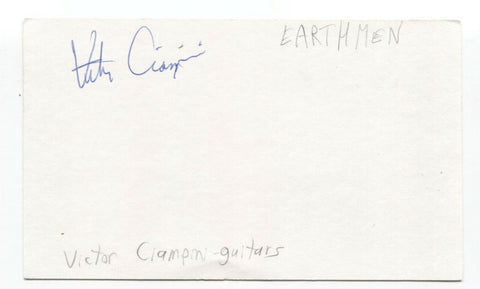 Victor Ciampini
EARTHMEN
Victor Ciampini-guitars